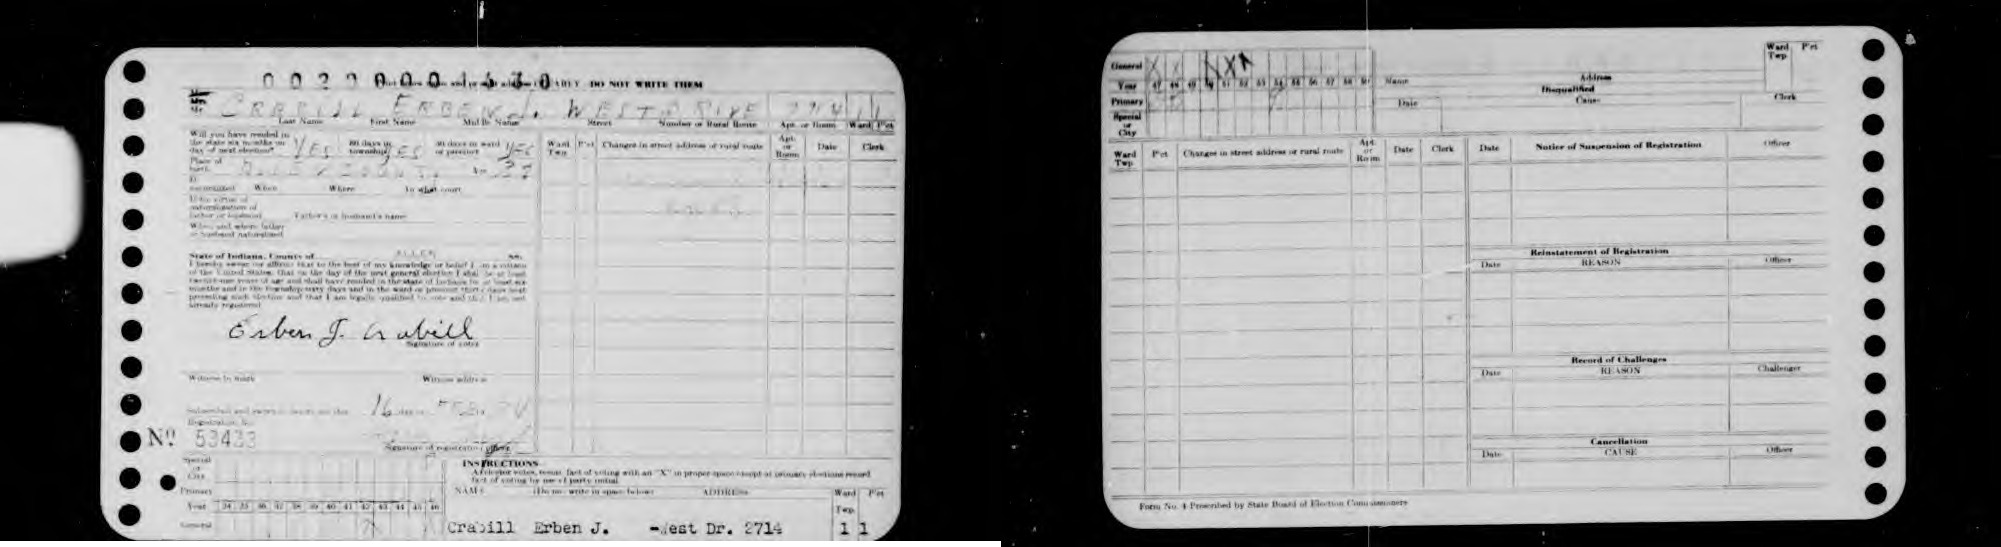 DO NOT WRITE THEM
Mr. CRABILL ERBEN J. WEST DRIVE 2714 1 1
Last Name First Name Middle Name Street Number or Rural Route Apt. or Room Ward P'ct
Will you have resided in
the state six months on
day of next election? YES 60 days in township? YES 30 days in ward or precinct YES
Place of birth Age
If naturalized When Where In what court
If by virtue of
naturalization of
father or husband Father's or husband's name
When and where father
or husband naturalized
State of Indiana, County of ALLEN ss.
I hereby swear (or affirm) that to the best of my knowledge or belief I am a citizen
of the United States, that on the day of the next general election I shall be at least
twenty-one years of age and shall have resided in the state of Indiana for at least six
months and in the township sixty days and in the ward or precinct thirty days next
preceding such election and that I am legally qualified to vote and that I am not
already registered.
Erben J. Crabill
Signature of voter
Witness to mark Witness address
Subscribed and sworn to before me this 16 day of FEB.
Registration No.
Nº 53423
Signature of registration officer
Ward Twp. P'ct Changes in street address or rural route Apt. or Room Date Clerk
Special or City
Primary
Year 34 35 36 37 38 39 40 41 42 43 44 45 46
General X
INSTRUCTIONS
As elector votes, record fact of voting with an "X" in proper space except at primary elections record
fact of voting by use of party initial.
NAME (Do not write in space below) ADDRESS Ward Twp. P'ct
Crabill Erben J. West Dr. 2714 1 1
General X X X X X
Year 47 48 49 50 51 52 53 54 55 56 57 58 59
Primary
Special or City
Name Address Ward Twp. P'ct
Disqualified
Date Cause Clerk
Ward Twp. P'ct Changes in street address or rural route Apt. or Room Date Clerk
Date Notice of Suspension of Registration Officer
Reinstatement of Registration
Date REASON Officer
Record of Challenges
Date REASON Challenger
Cancellation
Date CAUSE Officer
Form No. 4 Prescribed by State Board of Election Commissioners